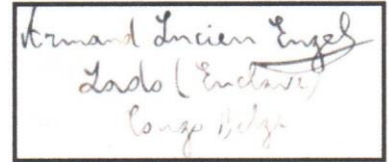 Armand Lucien Engels
Lado (Enclave)
Congo Belge